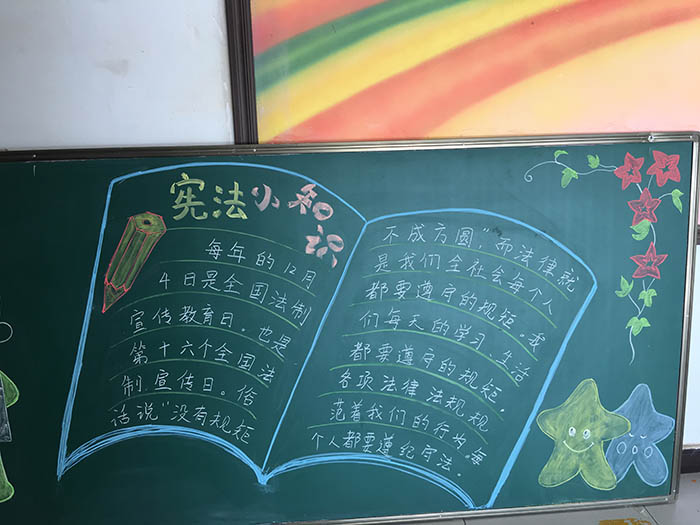 宪法小知识
每年的12月
4日是全国法制
宣传教育日。也是
第十六个全国法
制宣传日。俗
话说“没有规矩
不成方圆”，而法律就
是我们全社会每个人
都要遵守的规矩。我
们每天的学习、生活
都要遵守的规矩，
各项法律法规规
范着我们的行为。每
个人都要遵纪守法。